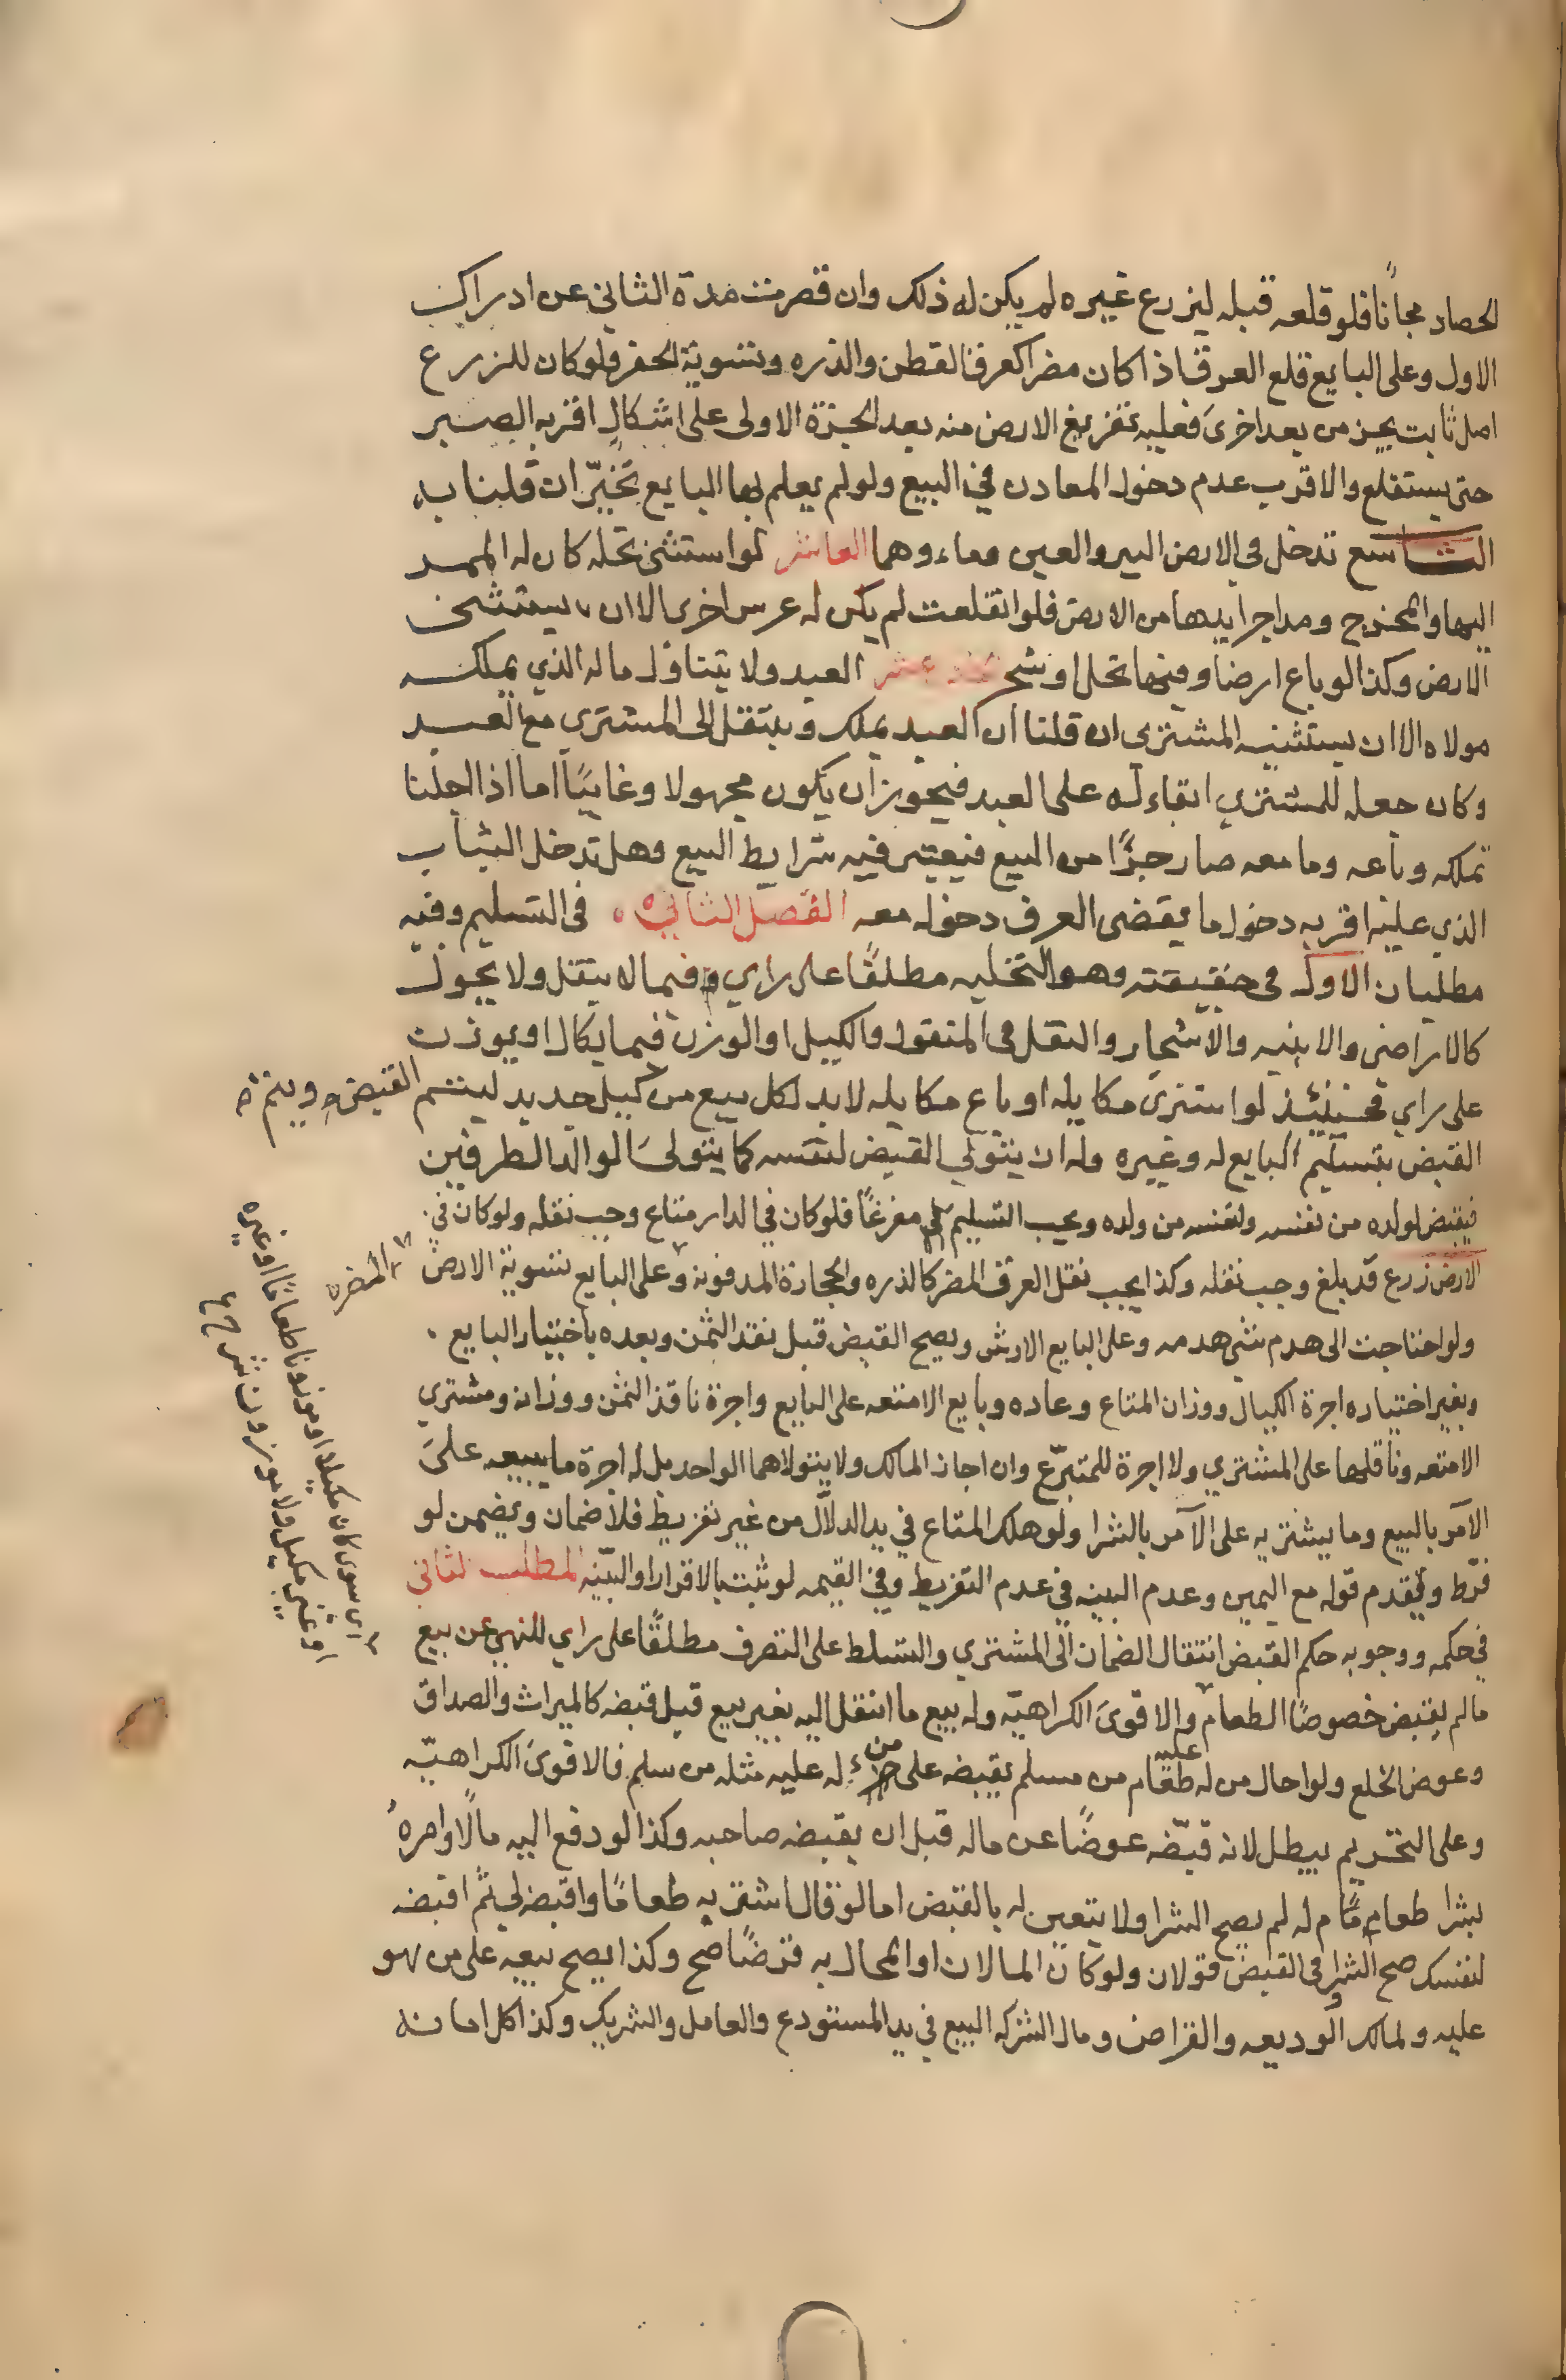 الحصاد مجاناً فلو قلعه قبله ليزرع غيره لم يكن له ذلك وان قصرت مدة الثاني عن ادراك
الاول وعلى البايع قلع العرق اذا كان مضرا كعرق القطن والذره وتسوية الحفر فلو كان للزرع
اصل ثابت يجز مره بعد اخرى فعليه تفريغ الارض منه بعد الجزة الاولى على اشكال اقربه الصبر
حتى يستقلع والاقرب عدم دخول المعادن في البيع ولو لم يعلم بها البايع تخيّر ان قلنا به
التاسع تدخل في الارض البير والعين وماءوهما العاشر لو استثنى نخله كان له الممر
اليها والمخرج ومدا جرايدها من الارض فلو انقلعت لم يكن له غرس اخرى الا ان يستثنى
الارض وكذا لو باع ارضا وفيها نخل او شجر عشر العبد ولا يتناول ماله الذي يملكه
مولاه الا ان يستثنيه المشتري ان قلنا ان العبد يملك وينتقل الى المشتري مع العبد
وكان جعله للمشتري ابقاء له على العبد فيجوز ان يكون مجهولا وغايبًا اما اذا احلنا
تملكه وباعه وما معه صار جزءًا من المبيع فيعتبر فيه شرايط البيع وهل تدخل الثياب
الذي عليه اقربه دخول ما يقضى العرف دخوله معه الفصل الثاني في التسليم وفيه
مطلبان الاول في حقيقته وهو التخليه مطلقًا على راي وفيما لا ينتقل ولا يحول
كالاراضي والابنيه والاشجار والنقل في المنقول والكيل او الوزن فيما يكال او يوزن
على راي فحينئذ لو اشترى مكايله او باع مكايله لابد لكل بيع من كيل جديد ليتم القبض ويتم
القبض بتسليم البايع له وغيره وله ان يتولى القبض لنفسه كما يتولى الوالد الطرفين
فيقبض لولده من نفسه ولنفسه من ولده ويجب التسليم مفرغًا فلو كان في الدار متاع وجب نقله ولو كان في
الارض زرع قد بلغ وجب نقله وكذا يجب نقل العرق المضر كالذره والحجارة المدفونة وعلى البايع تسوية الارض
المضره
ولو احتاجت الى هدم شي هدمه وعلى البايع الارش ويصح القبض قبل نقد الثمن وبعده باختيار البايع
وبغير اختياره اجرة الكيال ووزان المتاع وعاده وبايع الامتعه على البايع واجرة ناقد الثمن ووزانه ومشتري
الامتعه وناقلها على المشتري ولا اجرة للمتبرّع وان اجاز المالك ولا يتولاهما الواحد بل له اجرة ما يبيعه على
الآمر بالبيع وما يشتريه على الآمر بالشرا ولو هلك المتاع في يد الدلاّل من غير تفريط فلا ضمان ويضمن لو
فرّط ويقدم قوله مع اليمين وعدم البينه في عدم التفريط وفي القيمه لو ثبت بالاقرار او البيّنه المطلب الثاني
في حكمه ووجوبه حكم القبض انتقال الضمان الى المشتري والتسلط على التصرف مطلقًا على راي للنهي عن بيع
ما لم يقبض خصوصًا الطعام والاقوى الكراهيّه وله بيع ما انتقل اليه بغير بيع قبل قبضه كالميراث والصداق
وعوض الخلع ولو احال من له عليه طعام من مسلم بقبضه على من له عليه مثله من سلم فالاقوى الكراهيّه
وعلى التحريم يبطل لانه قبّضه عوضًا عن ماله قبل ان يقبضه صاحبه وكذا لو دفع اليه مالًا وامره
بشرا طعام له لم يصح الشرا ولا يتعين له بالقبض اما لو قال اشتر به طعامًا واقبضه لي ثم اقبضه
لنفسك صح الشرا وفي القبض قولان ولو كان المالان او المحال به قرضًا صح وكذا يصح بيعه على من هو
عليه ولمالك الوديعه والقراض ومال الشركه البيع في يد المستودع والعامل والشريك وكذا كل امانة
اي سوى كان مكيلا او موزونا طعامًا او غيره
او غير مكيل ولا موزون شرح